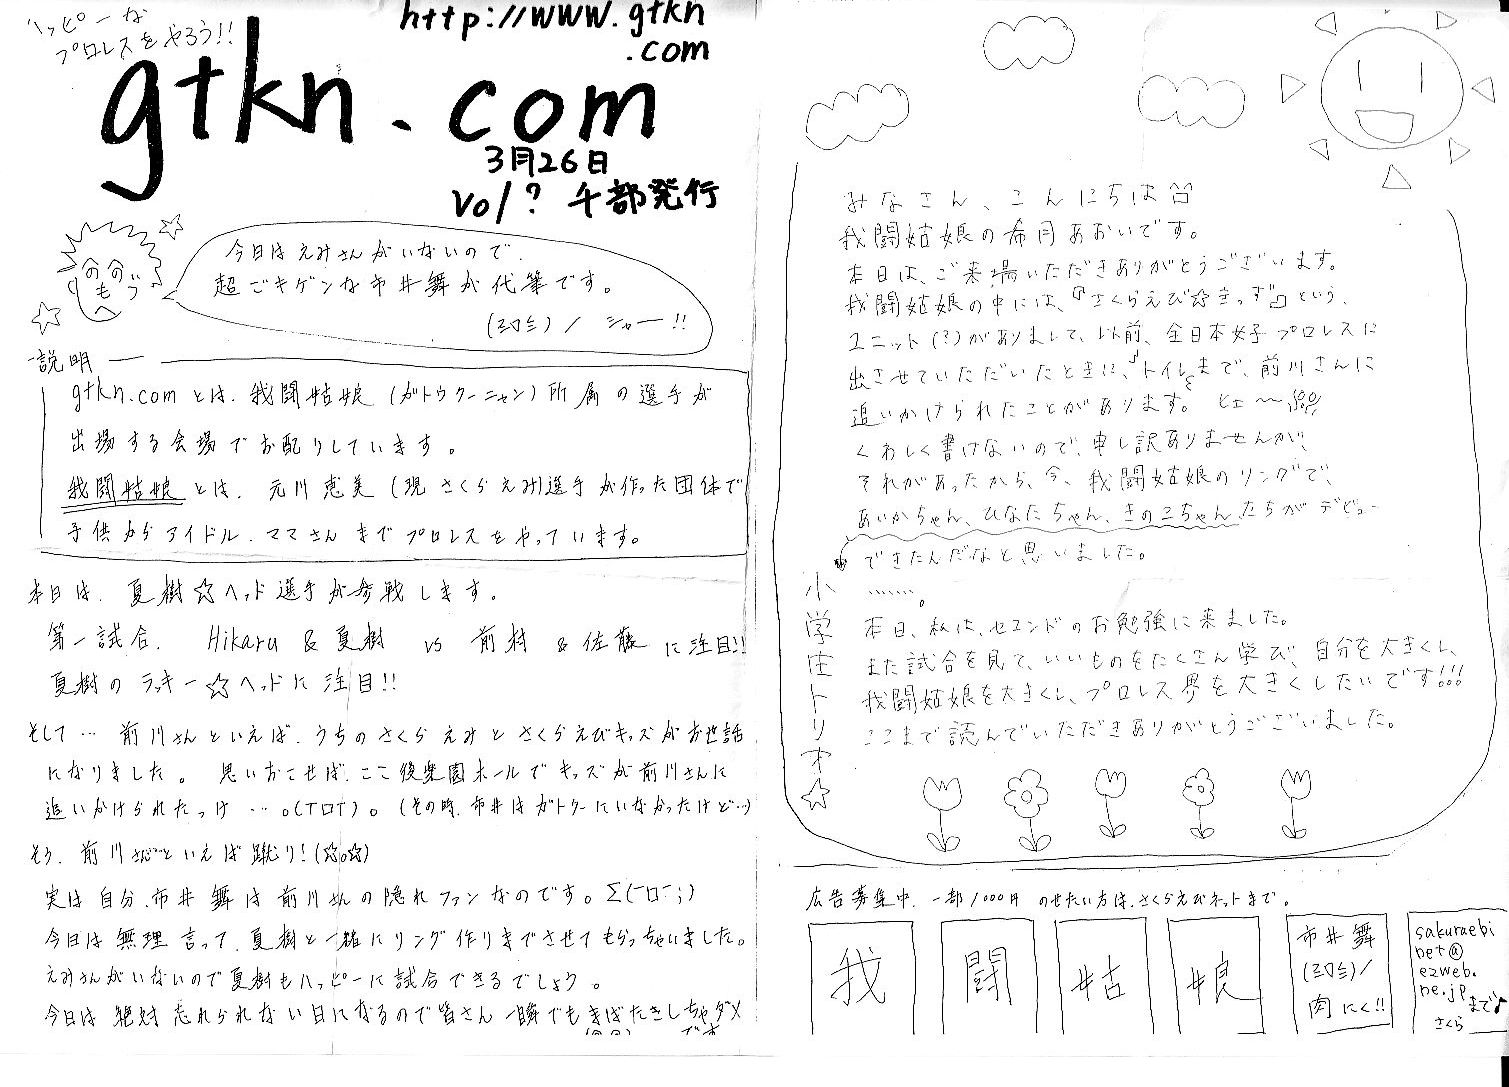 ハッピーな
プロレスをやろう!!
http://www.gtkn
.com
gtkn.com
3月26日
Vol? 千部発行
今日はえみさんがいないので、
超ごキゲンな市井舞が代筆です。
シャー!!
説明
gtkn.comとは、我闘姑娘(ガトウクーニャン)所属の選手が
出場する会場でお配りしています。
我闘姑娘とは、元川恵美(現さくらえみ)選手が作った団体で
子供からアイドル、ママさんまでプロレスをやっています。
本日は、夏樹☆ヘッド選手が参戦します。
第一試合、Hikaru & 夏樹 vs 前村 & 佐藤 に注目!!
夏樹のラッキー☆ヘッドに注目!!
そして… 前川さんといえば、うちのさくらえみとさくらえびキッズがお世話
になりました。思いおこせば、ここ後楽園ホールでキッズが前川さんに
追いかけられたっけ…。(T□T)。(その時、市井はガトクーにいなかったけど…)
そう、前川さんといえば蹴り!(☆o☆)
実は自分、市井舞は前川さんの隠れファンなのです。Σ(ー□ー;)
今日は無理言って、夏樹と一緒にリング作りまでさせてもらっちゃいました。
えみさんがいないので夏樹もハッピーに試合できるでしょう。
今日は絶対忘れられない日になるので皆さん一瞬でもまばたきしちゃダメ
です
みなさん、こんにちは
我闘姑娘の希月あおいです。
本日は、ご来場いただきありがとうございます。
我闘姑娘の中には、『さくらえび☆きっず』という、
ユニット(?)がありまして、以前、全日本女子プロレスに
出させていただいたときに、トイレまで、前川さんに
追いかけられたことがあります。ヒェ〜
くわしく書けないので、申し訳ありませんが、
それがあったから、今、我闘姑娘のリングで、
あいかちゃん、ひなたちゃん、きのこちゃんたちがデビュー
できたんだなと思いました。
小学生トリオ☆
…….。
本日、私は、セコンドのお勉強に来ました。
また試合を見て、いいものをたくさん学び、自分を大きくし、
我闘姑娘を大きくし、プロレス界を大きくしたいです!!!
ここまで読んでいただきありがとうございました。
広告募集中、一部1000円 のせたい方は、さくらえびネットまで。
我
闘
姑
娘
市井舞
肉にく!!
sakuraebi
net@
ezweb.
ne.jp
まで♪
さくら